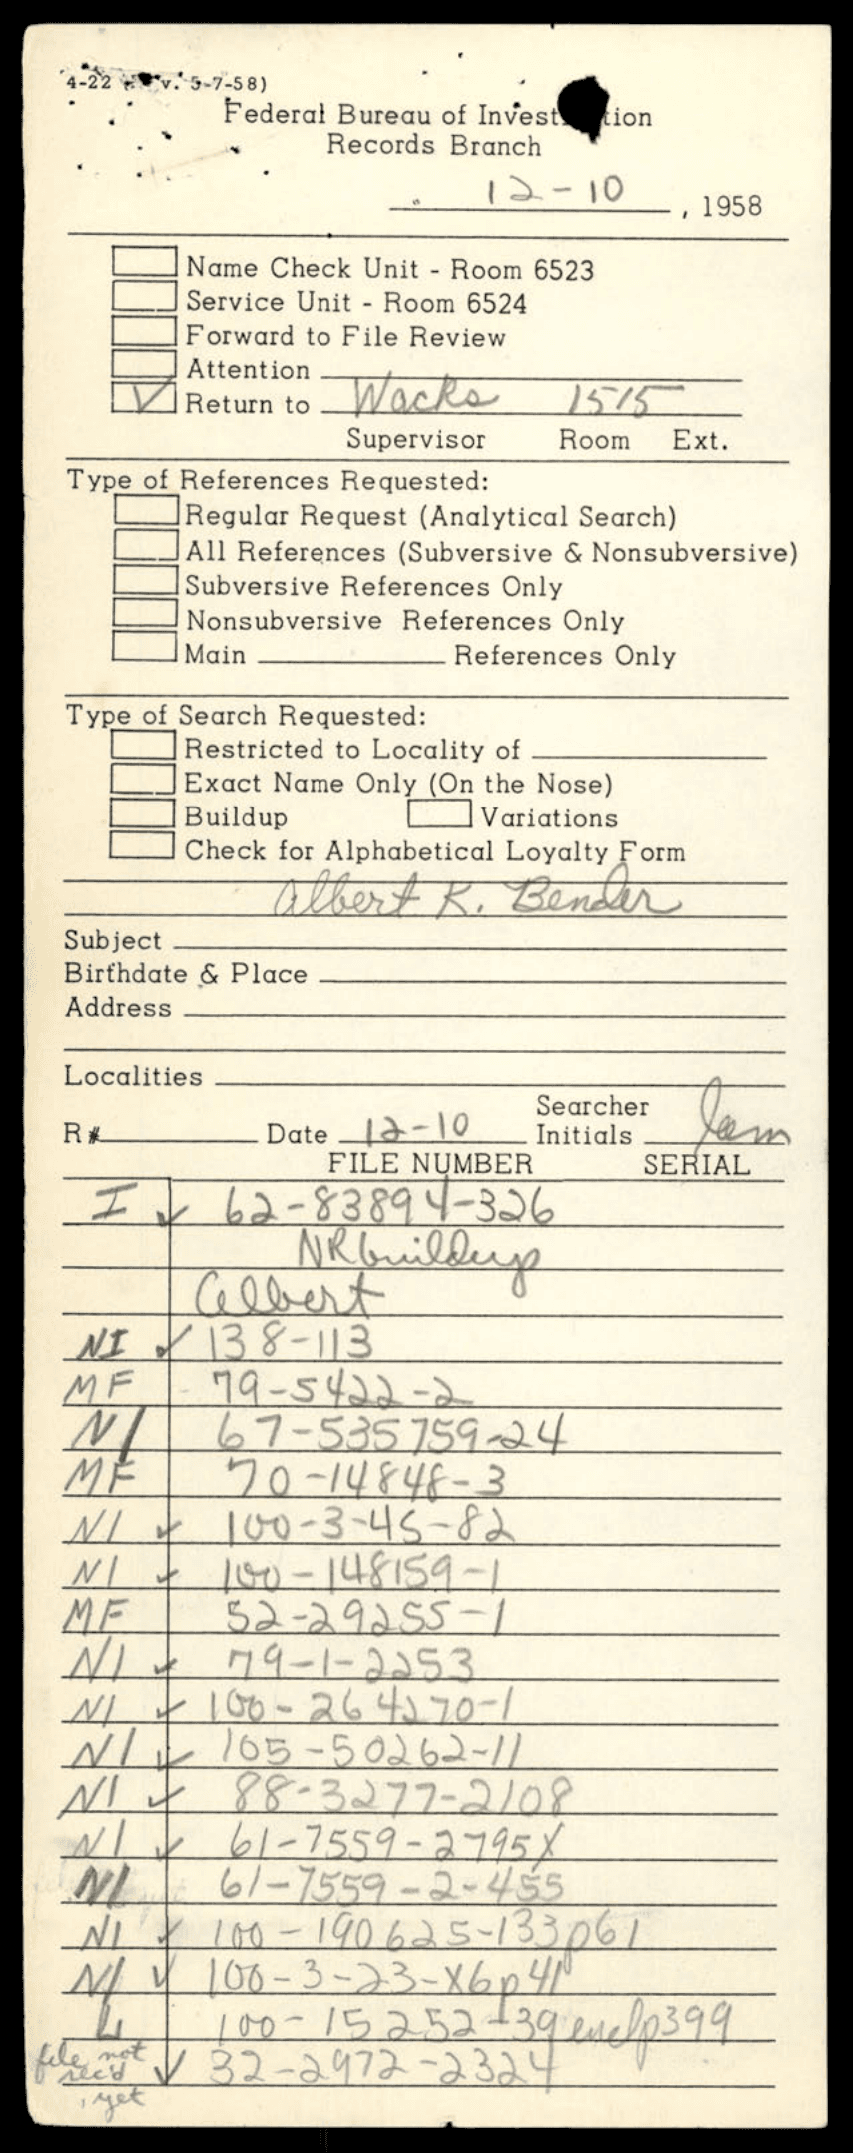 4-22 v. 5-7-58)
Federal Bureau of Invest tion
Records Branch
12-10, 1958
Name Check Unit - Room 6523
Service Unit - Room 6524
Forward to File Review
Attention
✓ Return to Wacks 1515
Supervisor Room Ext.
Type of References Requested:
Regular Request (Analytical Search)
All References (Subversive & Nonsubversive)
Subversive References Only
Nonsubversive References Only
Main References Only
Type of Search Requested:
Restricted to Locality of
Exact Name Only (On the Nose)
Buildup Variations
Check for Alphabetical Loyalty Form
Albert K. Bender
Subject
Birthdate & Place
Address
Localities
Searcher
R# Date 12-10 Initials
FILE NUMBER SERIAL
I ✓ 62-83894-326
NR buildup
Albert
NI ✓ 138-113
MF 79-5422-2
NI 67-535759-24
MF 70-14848-3
NI ✓ 100-3-45-82
NI ✓ 100-148159-1
MF 52-29255-1
NI ✓ 79-1-2253
NI ✓ 100-264270-1
NI ✓ 105-50262-11
NI ✓ 88-3277-2108
NI ✓ 61-7559-2795X
NI 61-7559-2-455
NI ✓ 100-190625-133p61
NI ✓ 100-3-23-X6p41
L 100-15252-39 enclp399
file not rec'd yet ✓ 32-2972-2324